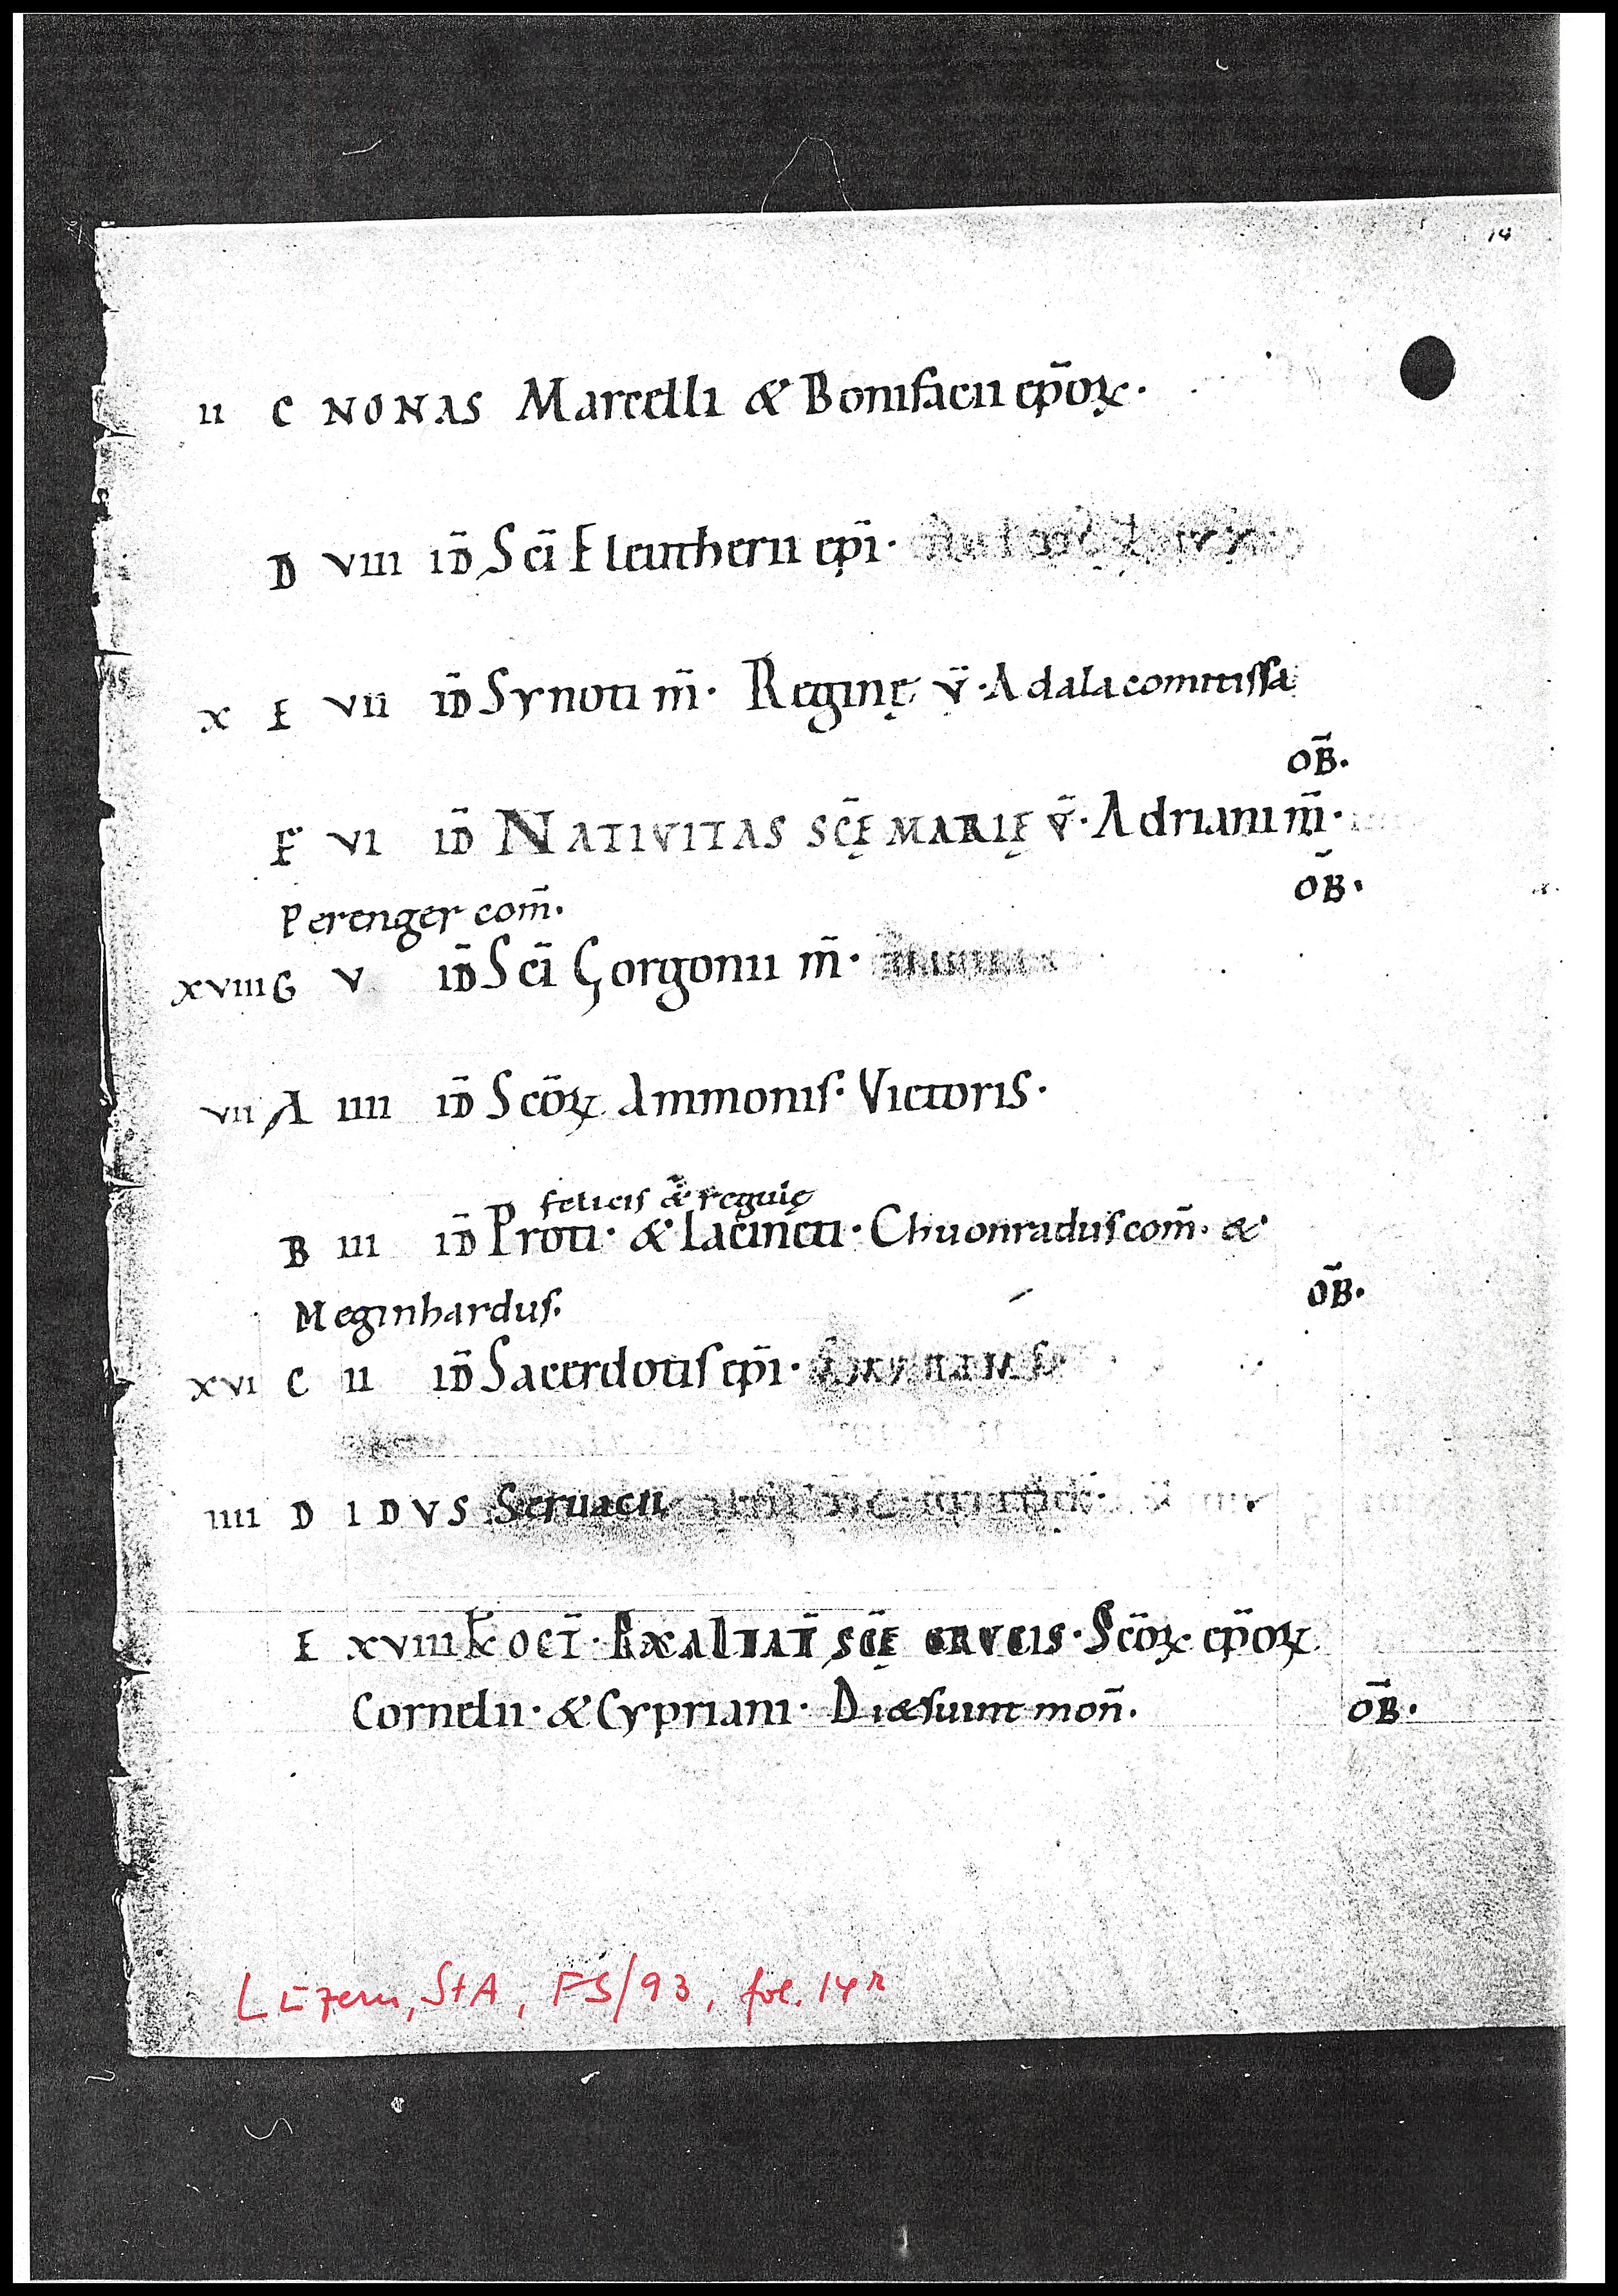 14
ii C NONAS Marcelli & Bonifacii ep̄oꝝ.
D viii id̄ Sc̄i Eleutherii ep̄i.
x E vii id̄ Synoti m̄. Reginę v̄. Adala comitissa
OB̄.
F vi id̄ NATIVITAS SC̄Ę MARIĘ V̄. Adriani m̄.
OB̄.
Perenger com̄.
xviii G v id̄ Sc̄i Gorgonii m̄.
vii A iiii id̄ Sc̄oꝝ Ammonis. Victoris.
felicis & regulę
B iii id̄ Proti. & Iacincti. Chuonradus com̄. &
Meginhardus. OB̄.
xvi C ii id̄ Sacerdotis ep̄i.
iiii D IDVS Seruacii
E xviii k̄ OCT̄. EXALTAT̄ SC̄Ę CRVCIS. Sc̄oꝝ ep̄oꝝ
Cornelii. & Cypriani. Diæsuint mon̄. OB̄.
Luzern, StA, FS/93, fol. 14r